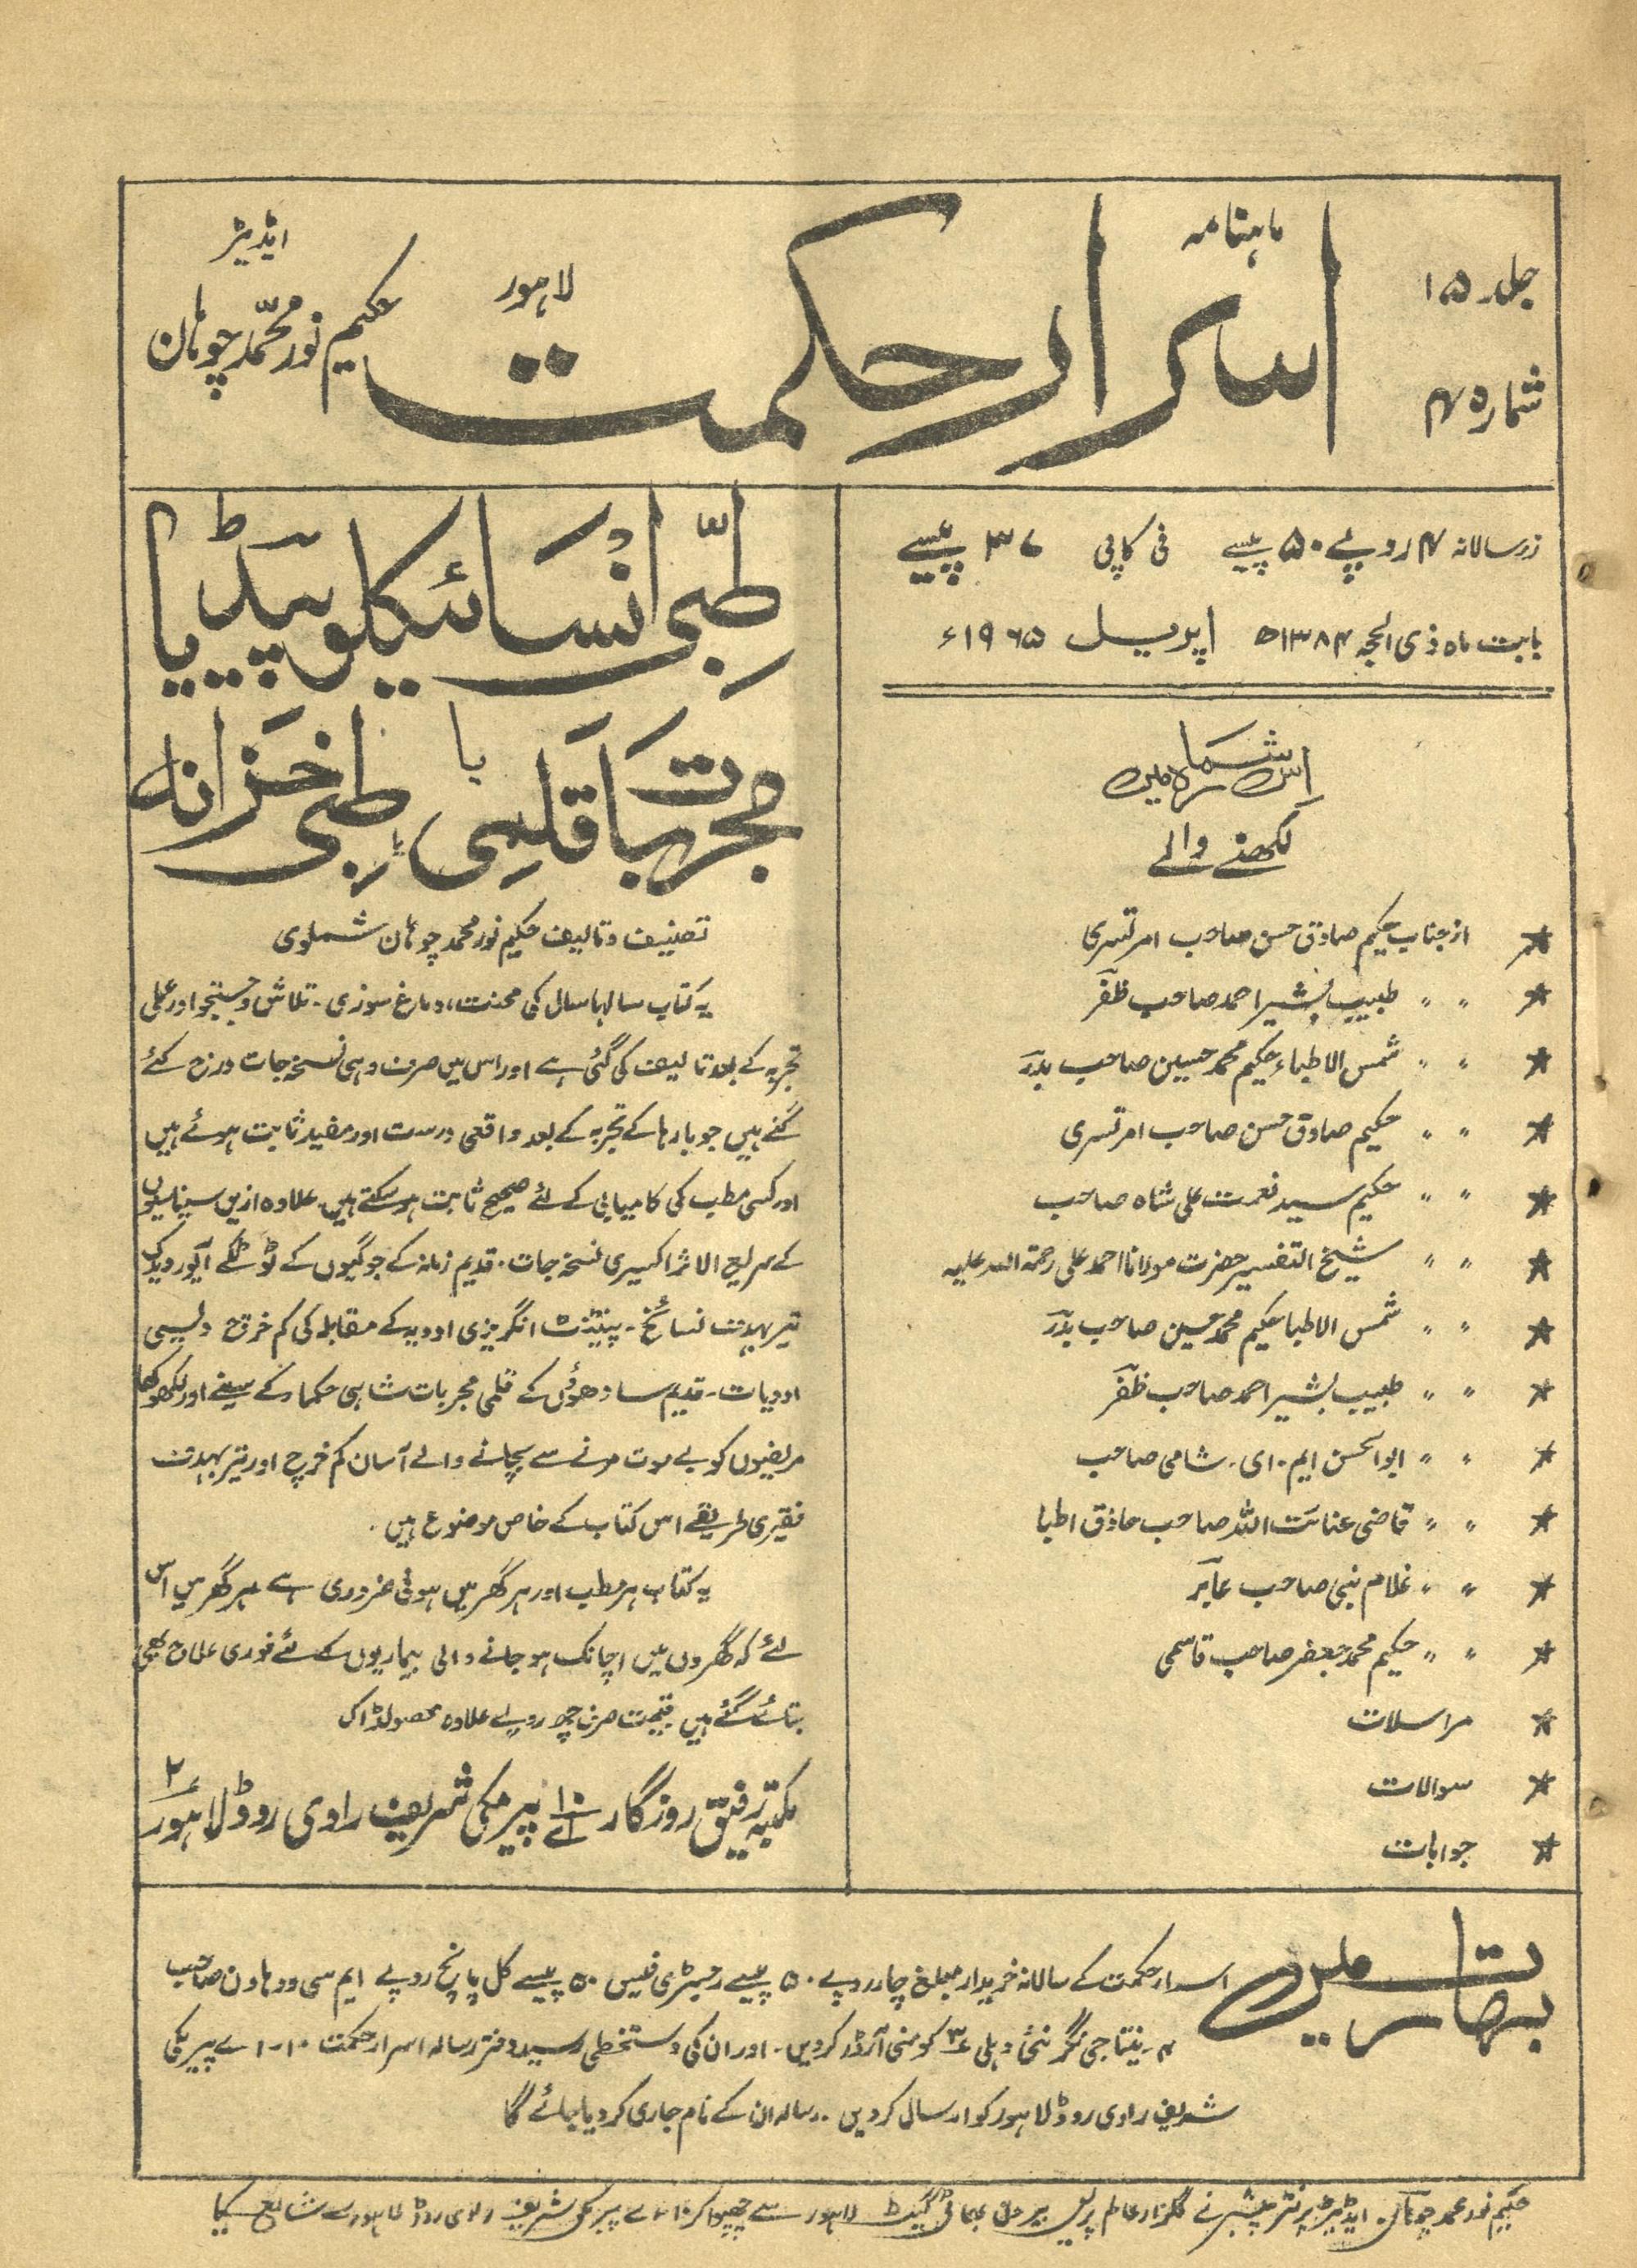 ماہنامہ
جلد ۱۵
اسرار حکمت
لاہور
ایڈیٹر
حکیم نور محمّد چوہان
شمارہ ۴
زر سالانہ ۴ روپے ۵۰ پیسے فی کاپی ۳۷ پیسے
بابت ماہ ذی الحجہ ۱۳۸۴ھ اپریل ۱۹۶۵ء
اس شمارہ میں
لکھنے والے
★ از جناب حکیم صادق حسن صاحب امرتسری
★ 〃 〃 طبیب بشیر احمد صاحب ظفر
★ 〃 〃 شمس الاطباء حکیم محمد حسین صاحب بدر
★ 〃 〃 حکیم صادق حسن صاحب امرتسری
★ 〃 〃 حکیم سید نعمت علی شاہ صاحب
★ 〃 〃 شیخ التفسیر حضرت مولانا احمد علی رحمۃ اللہ علیہ
★ 〃 〃 شمس الاطبا حکیم محمد حسین صاحب بدر
★ 〃 〃 طبیب بشیر احمد صاحب ظفر
★ 〃 〃 ابوالحسن ایم۔ ای۔ شامی صاحب
★ 〃 〃 قاضی عنائت اللہ صاحب حاذق اطبا
★ 〃 〃 غلام نبی صاحب عابر
★ 〃 〃 حکیم محمد جعفر صاحب قاسمی
★ مراسلات
★ سوالات
★ جوابات
طِبّی انسائیکلوپیڈیا
یا
مجربات قلمی یا طبی خزانہ
تصنیف و تالیف حکیم نور محمد چوہان شملوی
یہ کتاب سالہا سال کی محنت، دماغ سوزی۔ تلاش و جستجو اور عملی
تجربہ کے بعد تالیف کی گئی ہے اور اس میں صرف وہی نسخہ جات درج کئے
گئے ہیں جو بارہا کے تجربہ کے بعد واقعی درست اور مفید ثابت ہوئے ہیں
اور کسی مطب کی کامیابی کے لئے صحیح ثابت ہو سکتے ہیں۔ علاوہ ازیں سنیاسیوں
کے سریع الاثر اکسیری نسخہ جات۔ قدیم زمانہ کے جوگیوں کے ٹوٹکے آیورویدک
تیر بہدف نسائخ۔ پیٹنٹ انگریزی ادویہ کے مقابلہ کی کم خرچ دیسی
ادویات۔ قدیم سادھوؤں کے قلمی مجربات شاہی حکماء کے سینے اور لکھوکھا
مریضوں کو بے موت مرنے سے بچانے والے آسان کم خرچ اور تیر بہدف
فقیری طریقے اس کتاب کے خاص موضوع ہیں۔
یہ کتاب ہر مطب اور ہر گھر میں ہونی ضروری ہے ہر گھر میں اس
لئے کہ گھروں میں اچانک ہو جانے والی بیماریوں کے لئے فوری علاج بھی
بتائے گئے ہیں قیمت صرف چھ روپے علاوہ محصولڈاک
مکتبہ رفیق روزگار ۱۰/اے پیر مکی شریف راوی روڈ لاہور ۲
بھارت میں
اسرار حکمت کے سالانہ خریدار مبلغ چار روپے ۵۰ پیسے رجسٹری فیس ۵۰ پیسے کل پانچ روپے ایم سی ودھاون صاحب
۴۔ نیتا جی نگر نئی دہلی ۳ کو منی آرڈر کردیں۔ اور ان کی دستخطی رسید دفتر رسالہ اسرار حکمت ۱۰۔۱ے پیر مکی
شریف راوی روڈ لاہور کو ارسال کردیں۔ رسالہ ان کے نام جاری کردیا جائے گا
حکیم نور محمد چوہان۔ ایڈیٹر پرنٹر پبلشر نے گلزار عالم پریس بیرون بھاٹی گیٹ لاہور سے چھپوا کر ۱۰۔اے پیر مکی شریف راوی روڈ لاہور سے شائع کیا